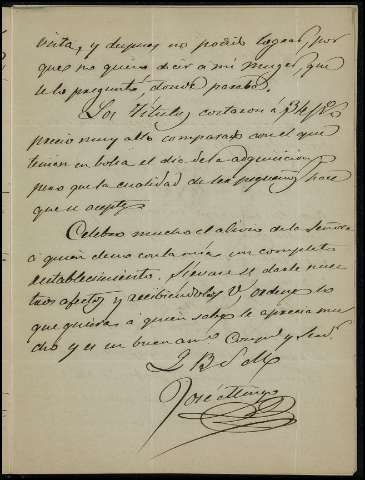 visita, y despues no podrló lograr, por
que no quiso decir a mi muger, que
se lo preguntó, donde paraba.
Los Titulos costaron á 
precio muy alto comparado con el que
tenian en bolsa el dia de la adquisicion
pero que la cualidad de los pequeños hace
que se acepte
Celebro mucho el alivio de la Señora
á quien deseo con la mia un completo
restablecimiento. Sirvase V. darle nues
tros afectos y recibiendolos V, ordene lo
que quiera á quien sabe le aprecia mu
cho y es su buen am.º Comp.º y
Q B S M
José